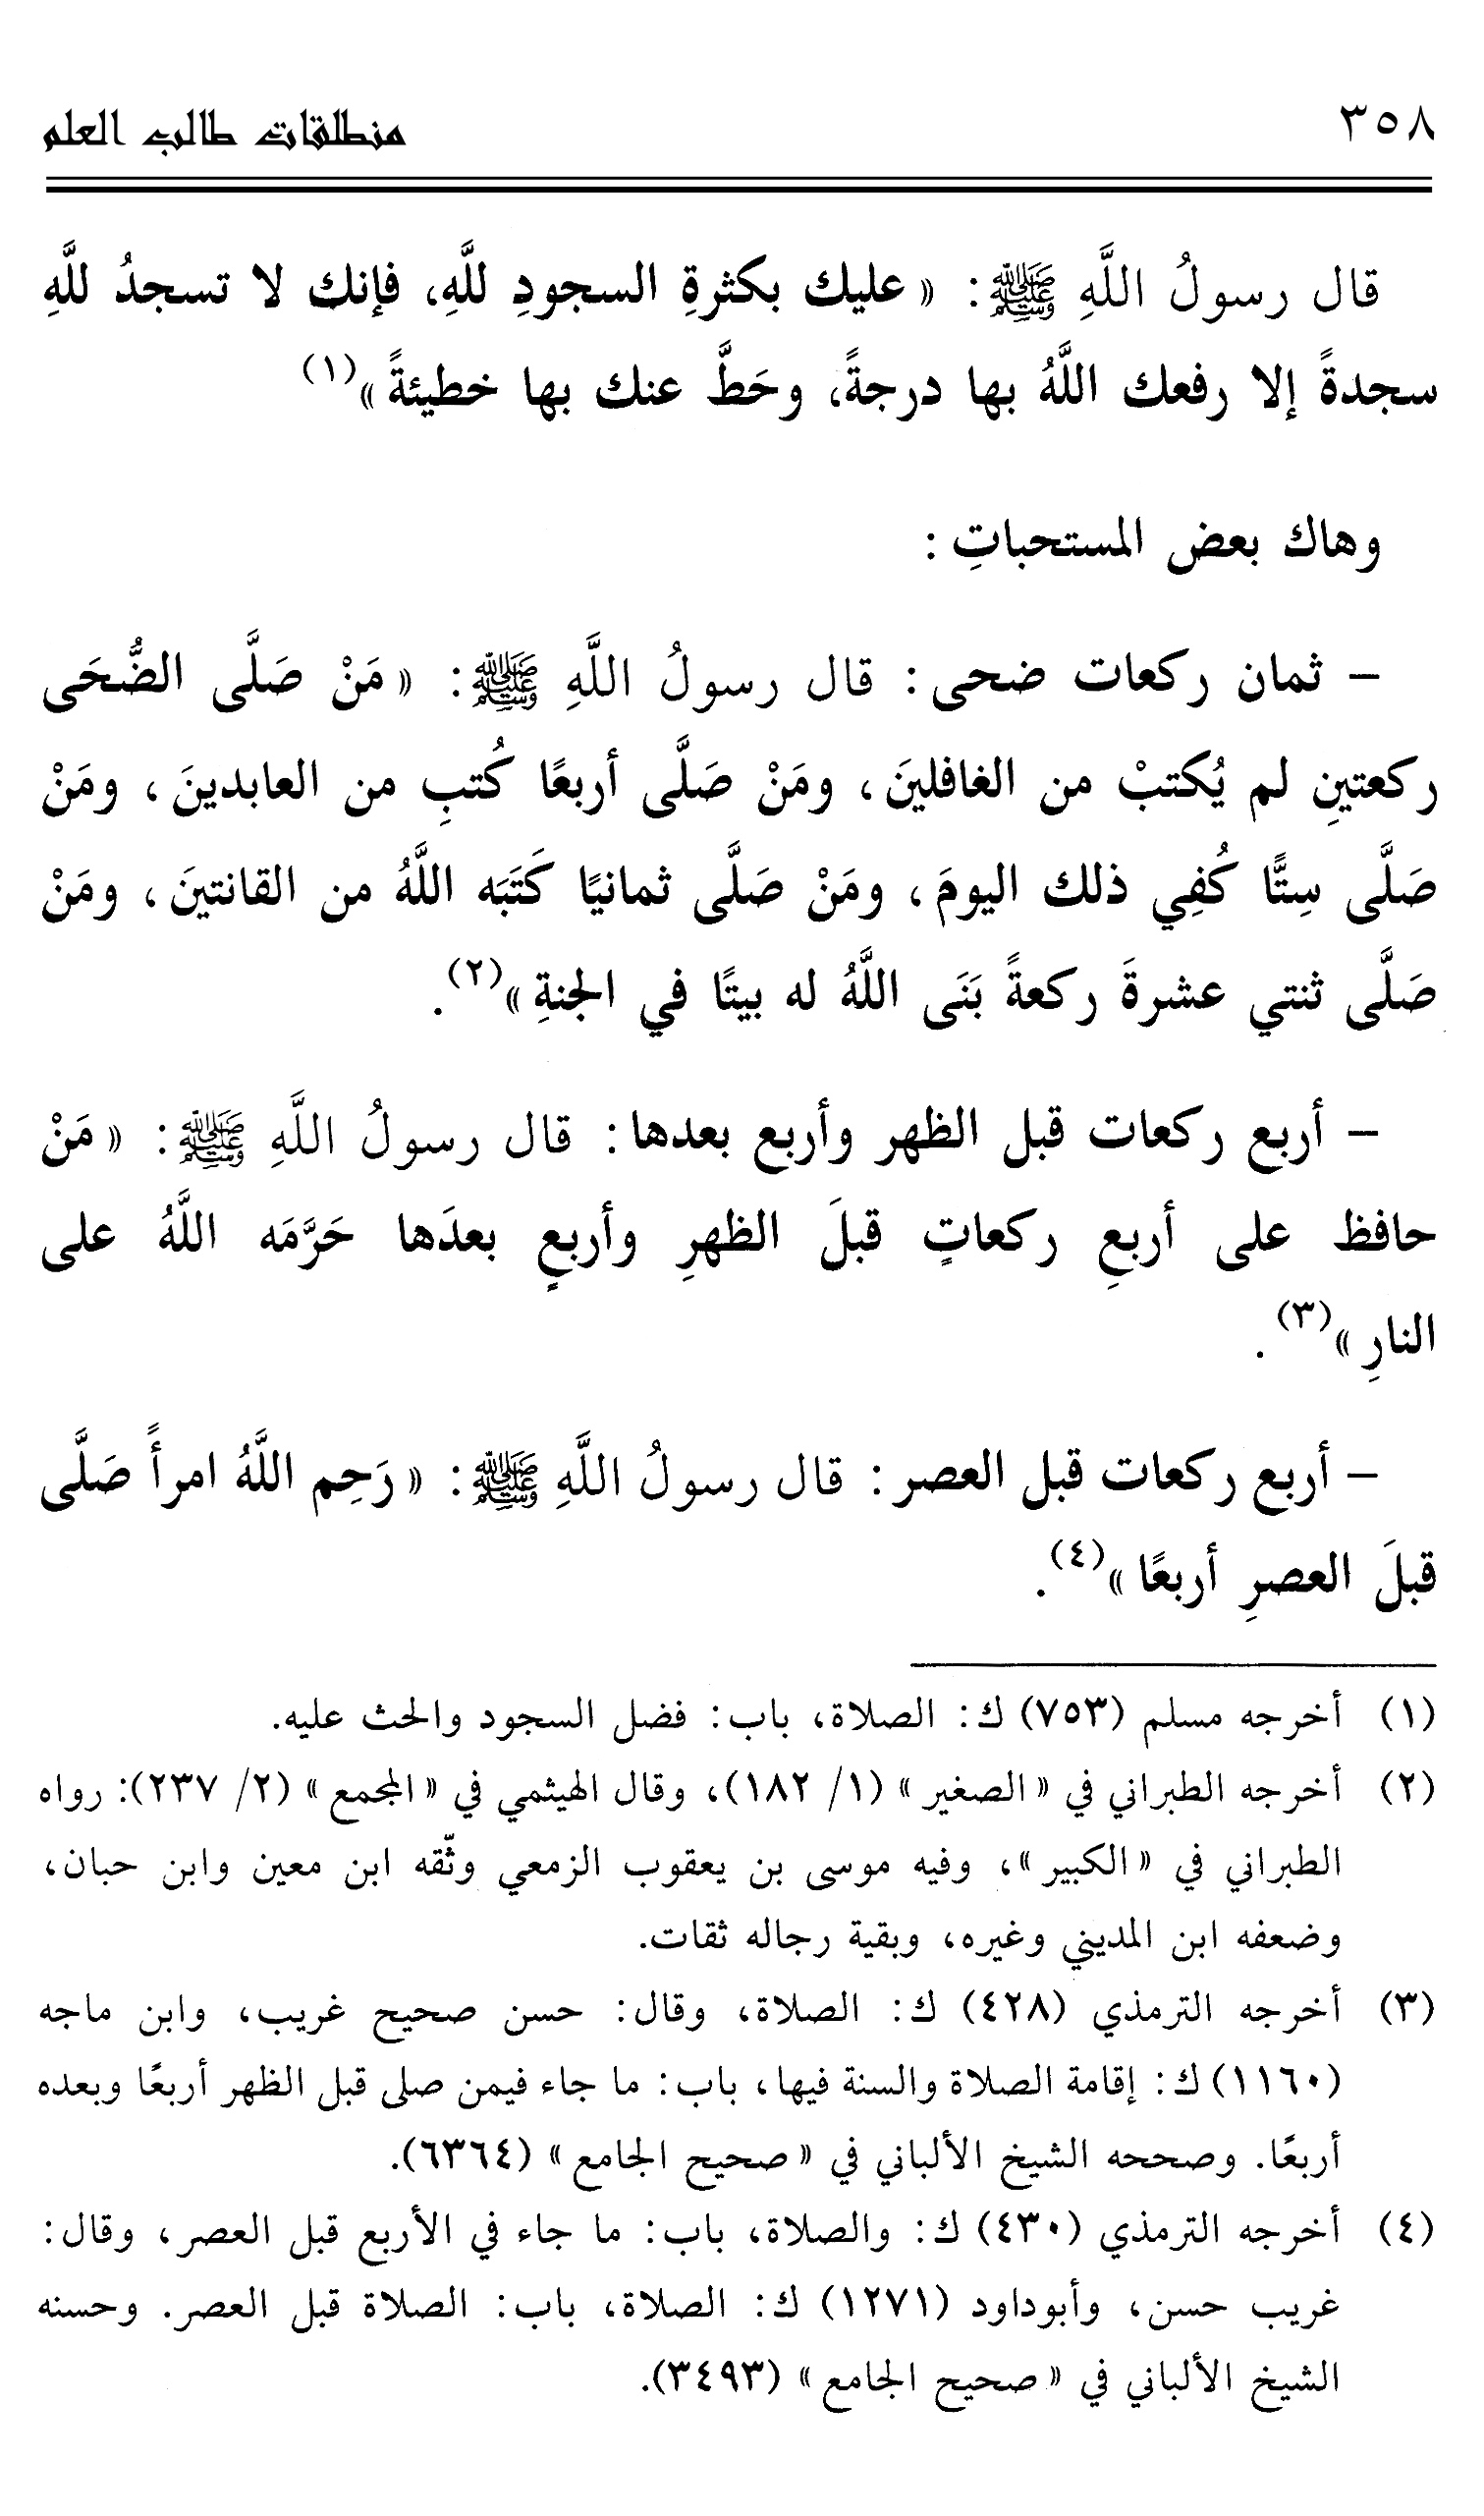 ٣٥٨ منطلقات طالب العلم
قال رسولُ اللَّهِ ﷺ: «عليك بكثرةِ السجودِ للَّهِ، فإنك لا تسجدُ للَّهِ
سجدةً إلا رفعك اللَّهُ بها درجةً، وحَطَّ عنك بها خطيئةً»(١)
وهاك بعض المستحباتِ:
– ثمان ركعات ضحى: قال رسولُ اللَّهِ ﷺ: «مَنْ صَلَّى الضُّحَى
ركعتينِ لم يُكتبْ من الغافلينَ، ومَنْ صَلَّى أربعًا كُتبِ من العابدينَ، ومَنْ
صَلَّى سِتًّا كُفِي ذلك اليومَ، ومَنْ صَلَّى ثمانيًا كَتَبَه اللَّهُ من القانتينَ، ومَنْ
صَلَّى ثنتي عشرةَ ركعةً بَنَى اللَّهُ له بيتًا في الجنةِ»(٢).
– أربع ركعات قبل الظهر وأربع بعدها: قال رسولُ اللَّهِ ﷺ: «مَنْ
حافظ على أربعِ ركعاتٍ قبلَ الظهرِ وأربعٍ بعدَها حَرَّمَه اللَّهُ على
النارِ»(٣).
– أربع ركعات قبل العصر: قال رسولُ اللَّهِ ﷺ: «رَحِم اللَّهُ امرأً صَلَّى
قبلَ العصرِ أربعًا»(٤).
(١) أخرجه مسلم (٧٥٣) ك: الصلاة، باب: فضل السجود والحث عليه.
(٢) أخرجه الطبراني في «الصغير» (١/ ١٨٢)، وقال الهيثمي في «المجمع» (٢/ ٢٣٧): رواه
الطبراني في «الكبير»، وفيه موسى بن يعقوب الزمعي وثّقه ابن معين وابن حبان،
وضعفه ابن المديني وغيره، وبقية رجاله ثقات.
(٣) أخرجه الترمذي (٤٢٨) ك: الصلاة، وقال: حسن صحيح غريب، وابن ماجه
(١١٦٠) ك: إقامة الصلاة والسنة فيها، باب: ما جاء فيمن صلى قبل الظهر أربعًا وبعده
أربعًا. وصححه الشيخ الألباني في «صحيح الجامع» (٦٣٦٤).
(٤) أخرجه الترمذي (٤٣٠) ك: والصلاة، باب: ما جاء في الأربع قبل العصر، وقال:
غريب حسن، وأبوداود (١٢٧١) ك: الصلاة، باب: الصلاة قبل العصر. وحسنه
الشيخ الألباني في «صحيح الجامع» (٣٤٩٣).